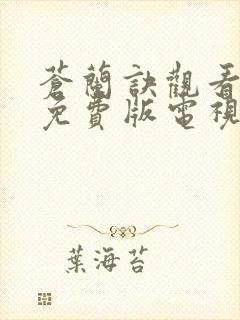 蒼蘭訣觀看
免費版電視
葉海苔